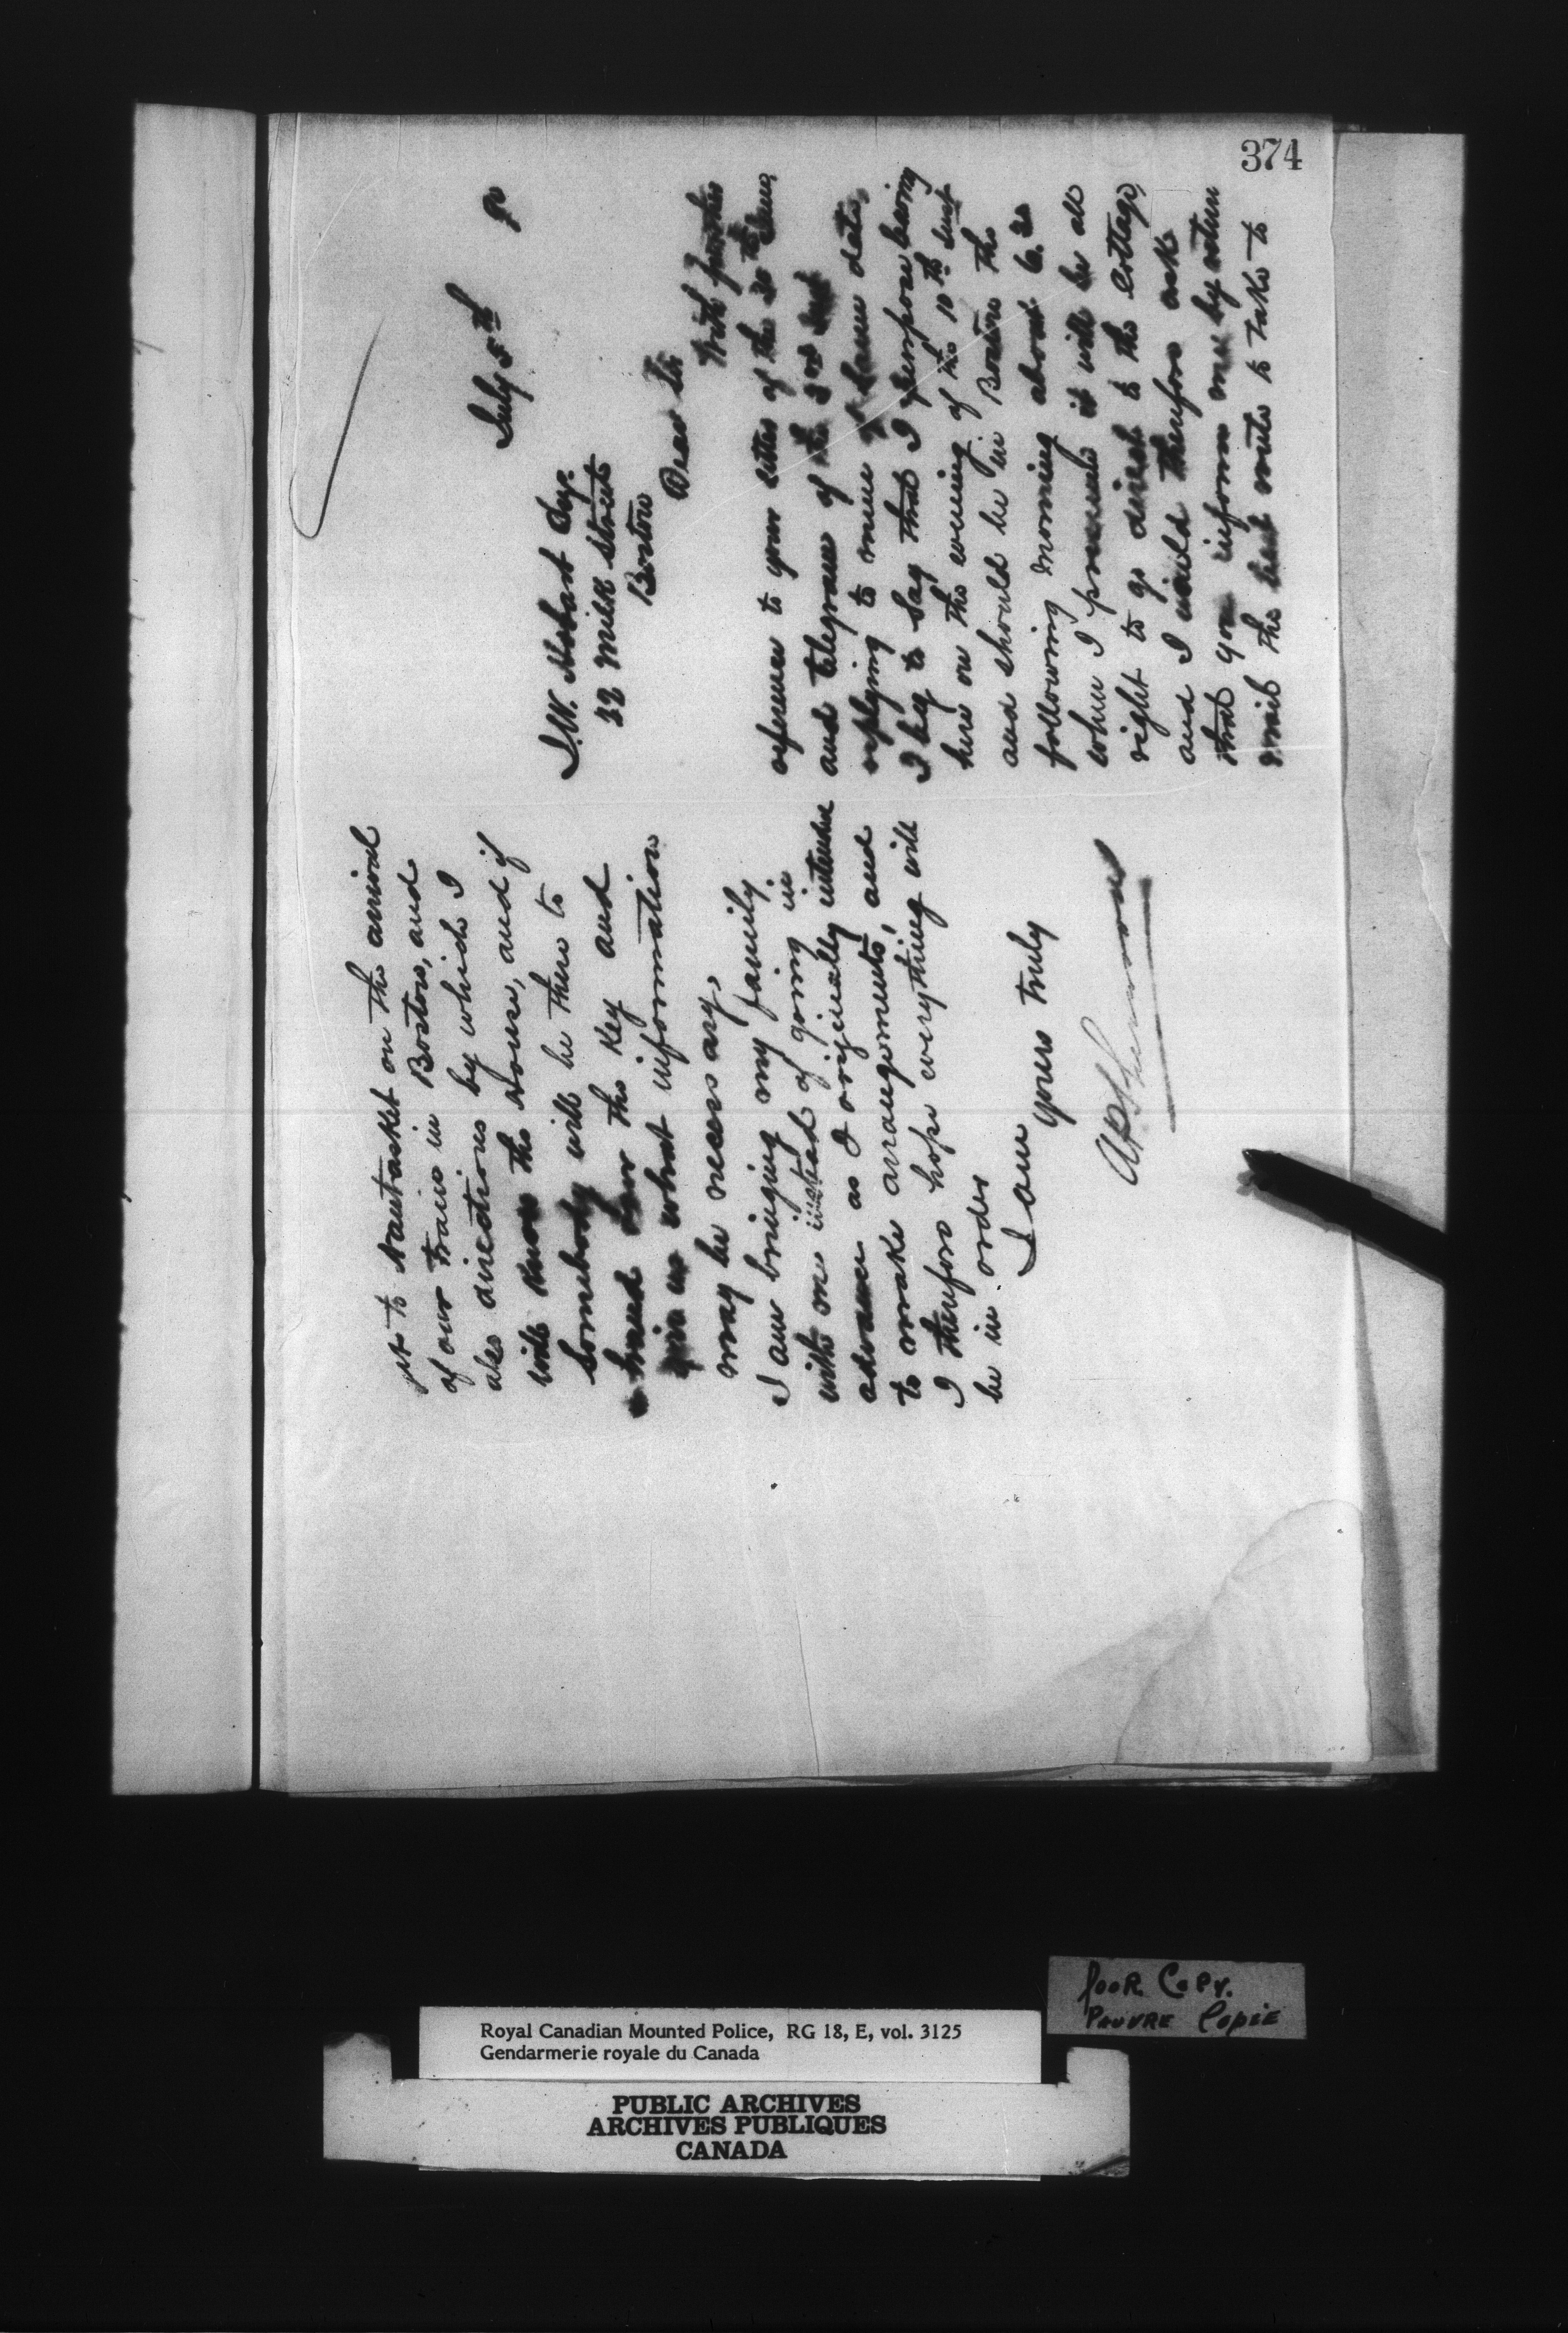 374
July 5th 90
I.W. Hobart Esq.
32 Milk Street
Boston
Dear Sir
With further
reference to your letter of the 30th June
and telegram of the 3rd inst
replying to mine of same date,
I beg to say that I purpose leaving
here on the evening of the 10th inst
and should be in Boston the
following morning about
when I presume it will be all
right to go direct to the cottage,
and I would therefore ask
that you inform me by return
mail the best route to take to
get to Nantasket on the arrival
of our train in Boston, and
also directions by which I
will know the House, and if
somebody will be there to
hand over the key and
give us what information
may be necessary.
I am bringing my family
with me instead of going in
advance as I originally intended
to make arrangements, and
I therefore hope everything will
be in order
I am
yours truly
AP Sherwood
Poor Copy.
Pauvre Copie
Royal Canadian Mounted Police, RG 18, E, vol. 3125
Gendarmerie royale du Canada
PUBLIC ARCHIVES
ARCHIVES PUBLIQUES
CANADA